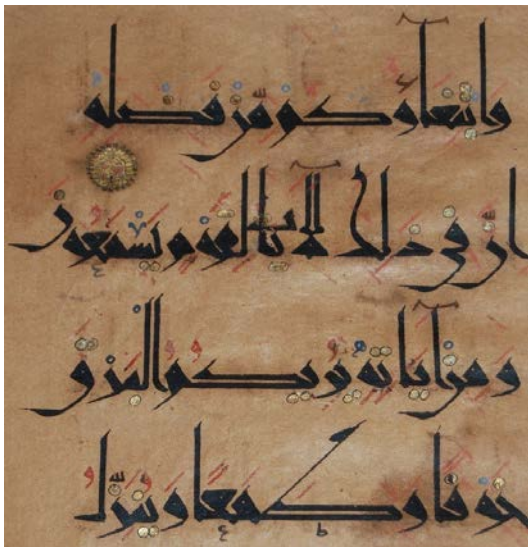 وابتغآؤكم من فضله
ان في ذلك لآيات لقوم يسمعون
ومن آياته يريكم البرق
خوفا وطمعا وينزل